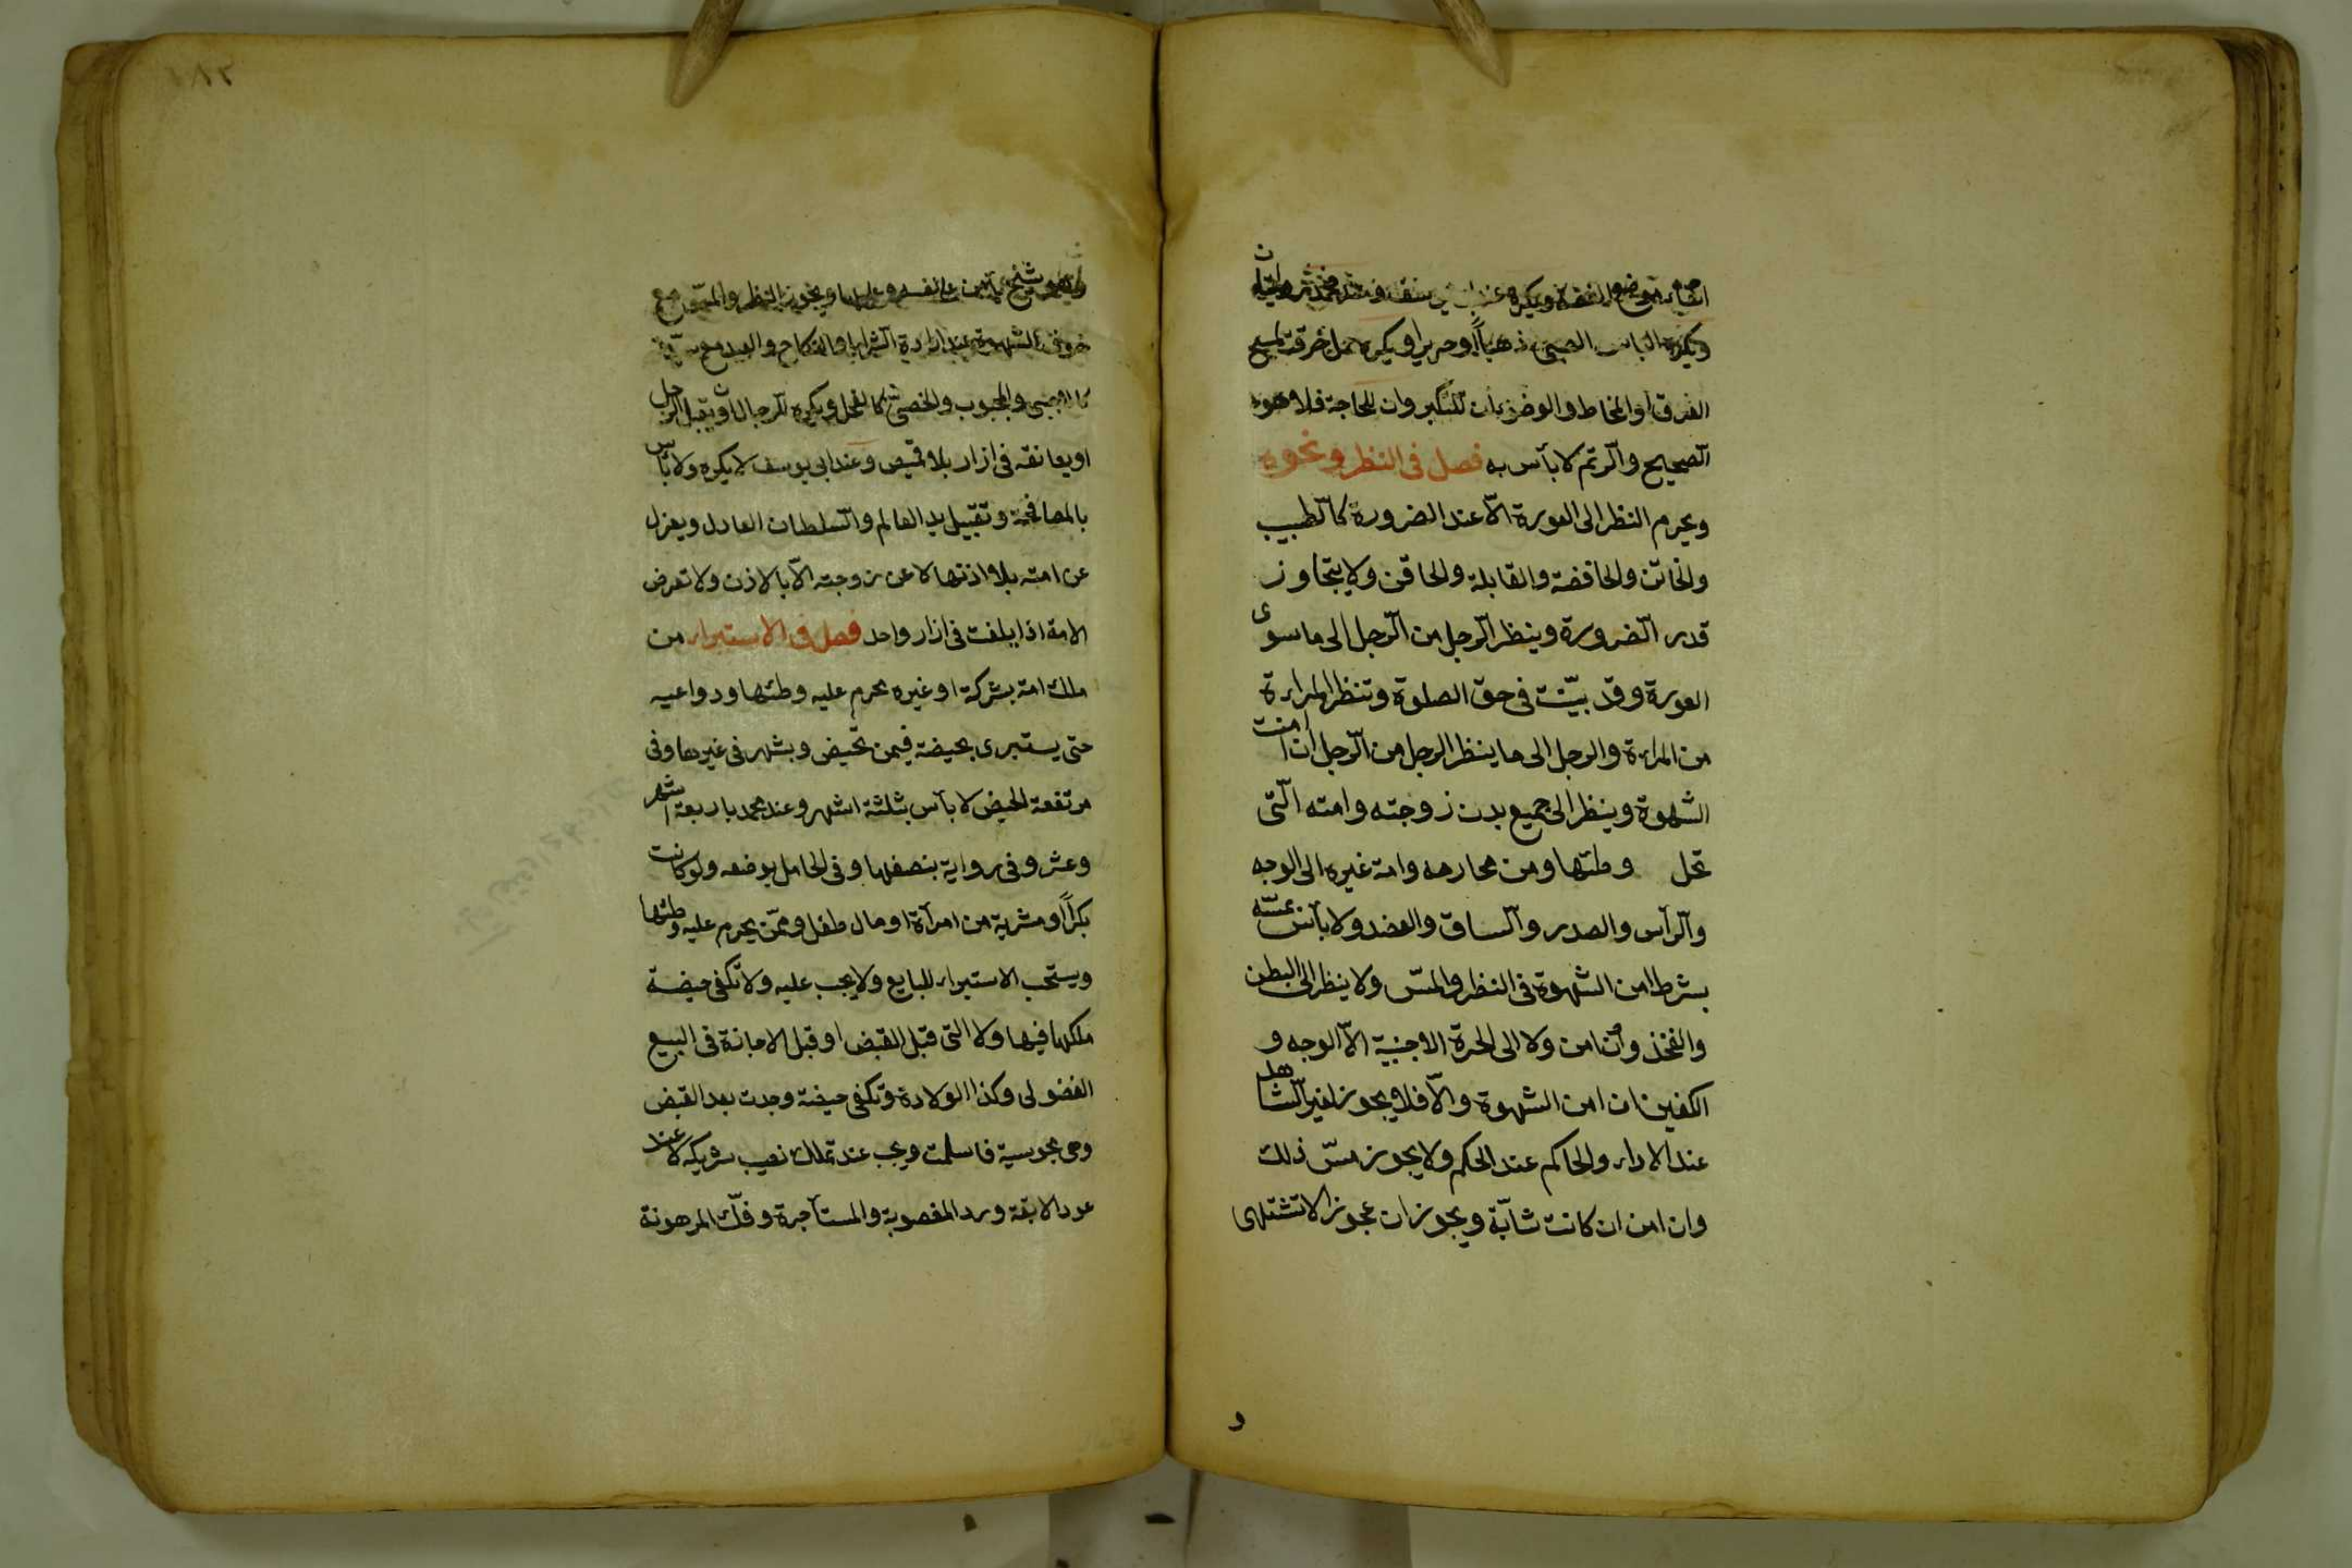 اتقاء موضع الفضة ويكره عند ابى يوسف وعند محمد روايتان
ويكره الباس الصبى ذهباً او حريرا ويكره حمل خرقة لمسح
العرق او المخاط او الوضوء ان للتكبر وان للحاجة فلا هو
الصحيح والرتم لا بأس به فصل فى النظر ونحوه
ويحرم النظر الى العورة الّا عند الضرورة كالطبيب
والخاتن والخافضة والقابلة والحاقن ولا يتجاوز
قدر الضرورة وينظر الرجل من الرجل الى ما سوى
العورة وقد بيّنت فى حق الصلوة وتنظر المراءة
من المراءة والرجل الى ما ينظر الرجل من الرجل ان امنت
الشهوة وينظر الى جميع بدن زوجته وامته التى
تحل وطئها ومن محارمه وامة غيره الى الوجه
والرأس والصدر والساق والعضد ولا بأس بمسّه
بشرط امن الشهوة فى النظر والمسّ ولا ينظر الى البطن
والفخذ وان امن ولا الى الحرة الاجنبية الّا الوجه و
الكفين ان امن الشهوة والّا فلا ويجوز لغير الشاهد
عند الاداء والحاكم عند الحكم ولا يجوز مسّ ذلك
وان امن ان كانت شابّة ويجوز ان عجوز الا تشتهى
و
١٨٢
او هو شيخ يأمن على نفسه وعليها ويجوز النظر والمسّ مع
خوف الشهوة عند ارادة الشراء او النكاح والعبد مع سيدته
كالاجنبى والمجبوب والخصىّ كالفحل ويكره للرجال ان يقبل الرجل
او يعانقه فى ازار بلا قميص وعند ابى يوسف لا يكره ولا بأس
بالمصافحة وتقبيل يد العالم والسلطان العادل ويعزل
عن امته بلا اذنها لا عن زوجته الّا بالاذن ولا تعرض
الامة اذا بلغت فى ازار واحد فصل فى الاستبراء من
ملك امة بشركة او غيره يحرم عليه وطئها ودواعيه
حتى يستبرى بحيضة فيمن تحيض وبشهر فى غيرها وفى
مرتفعة الحيض لا بأس بثلثة اشهر وعند محمد باربعة اشهر
وعشر وفى رواية بنصفها وفى الحامل بوضعه ولو كانت
بكراً او مشرية من امرأة او مال طفل او ممّن يحرم عليه وطئها
ويستحب الاستبراء للبايع ولا يجب عليه ولا تكفى حيضة
ملكها فيها ولا التى قبل القبض او قبل الاجازة فى البيع
الفضولى وكذا الولادة وتكفى حيضة وجدت بعد القبض
وهى مجوسية فاسلمت ويجب عند تملك نصيب شريكه لا عند
عود الابقة ورد المغصوبة والمستأجرة وفكّ المرهونة